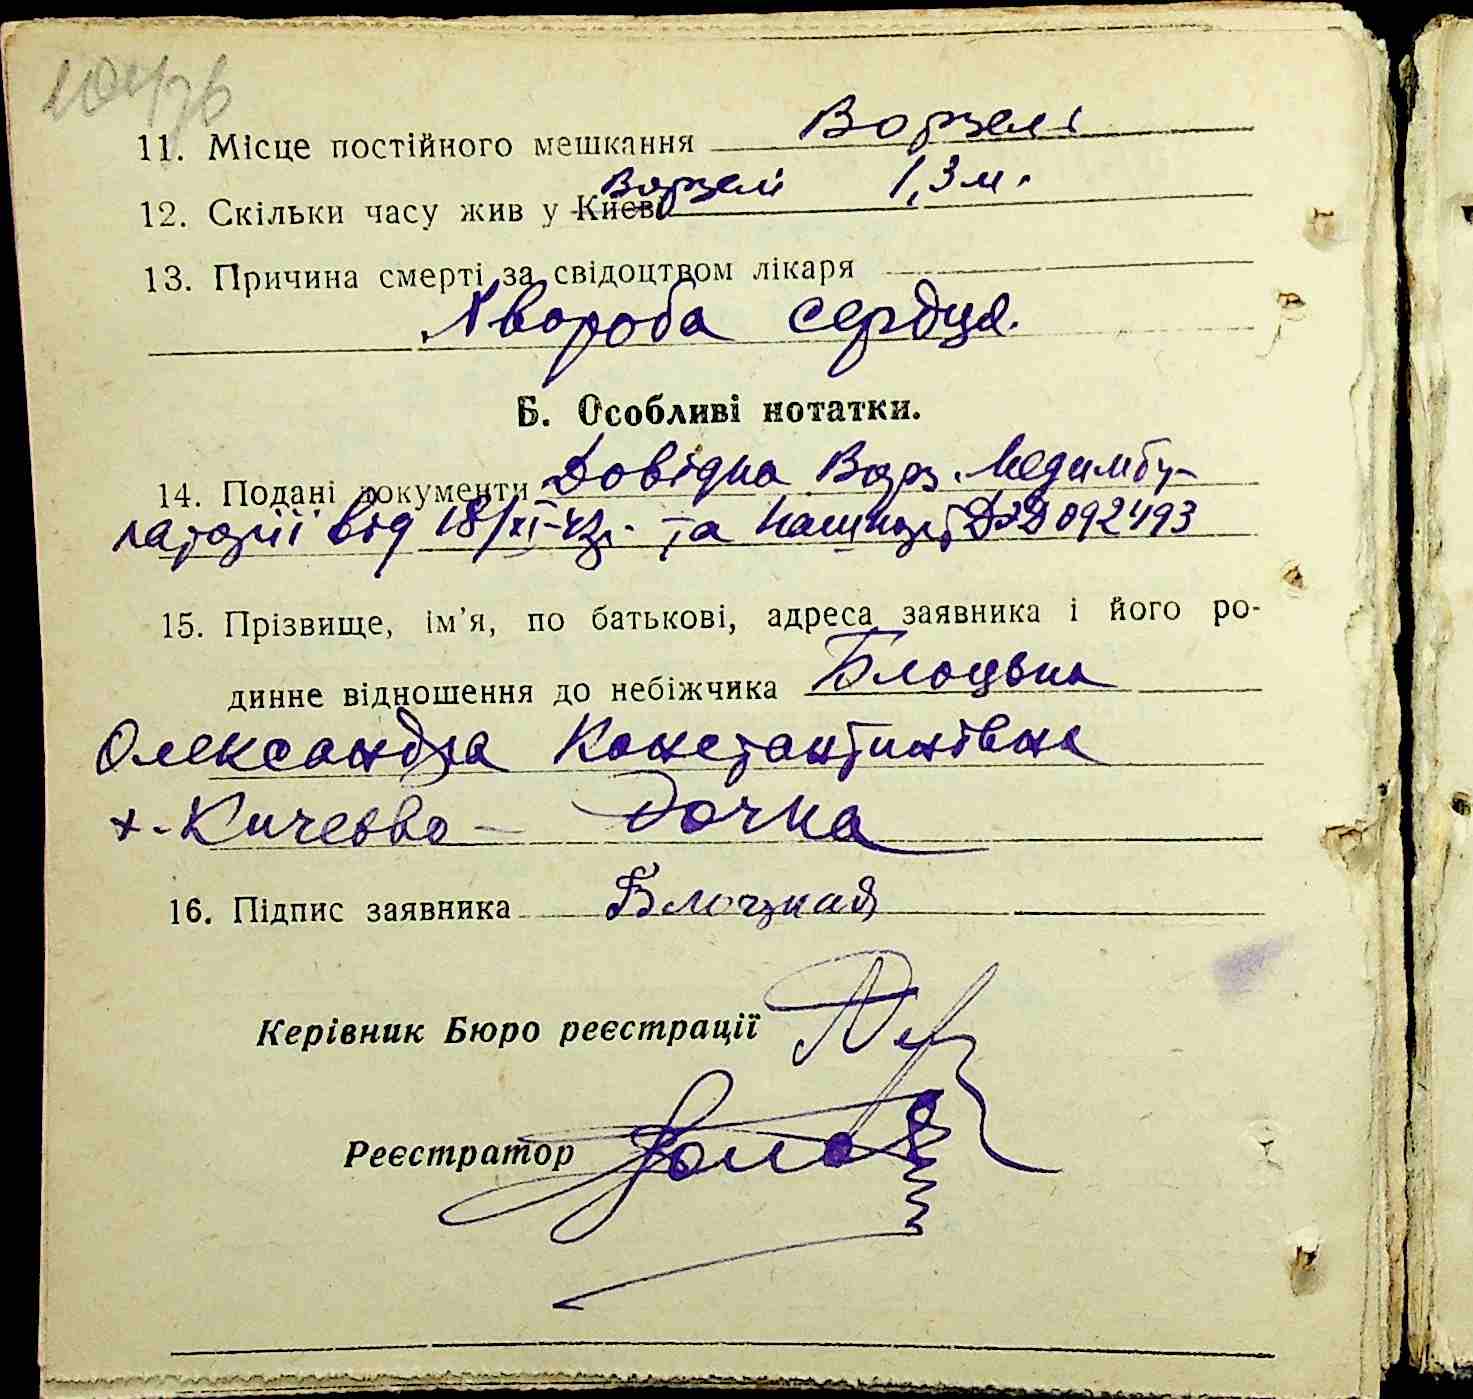 11. Місце постійного мешкання Ворзелі
12. Скільки часу жив у Києві Ворзелі 1,3 м.
13. Причина смерті за свідоцтвом лікаря
Хвороба сердця.
Б. Особливі нотатки.
14. Подані документи Довідка Ворз. Медамбу-
латорії від 18/XI-42р. та пашпорт 092493
15. Прізвище, ім'я, по батькові, адреса заявника і його ро-
динне відношення до небіжчика Блоцька
Олександра Константинівна
х. Кичеєво - Дочка
16. Підпис заявника Блоцкая
Керівник Бюро реєстрації
Реєстратор